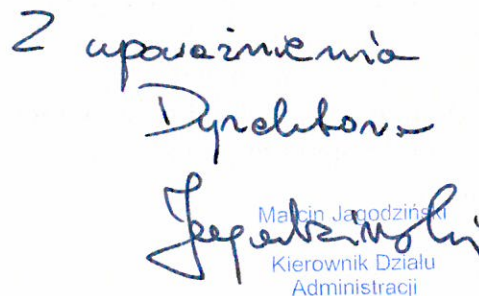 Z upoważnienia
Dyrektora
Jagodziński
Marcin Jagodziński
Kierownik Działu
Administracji